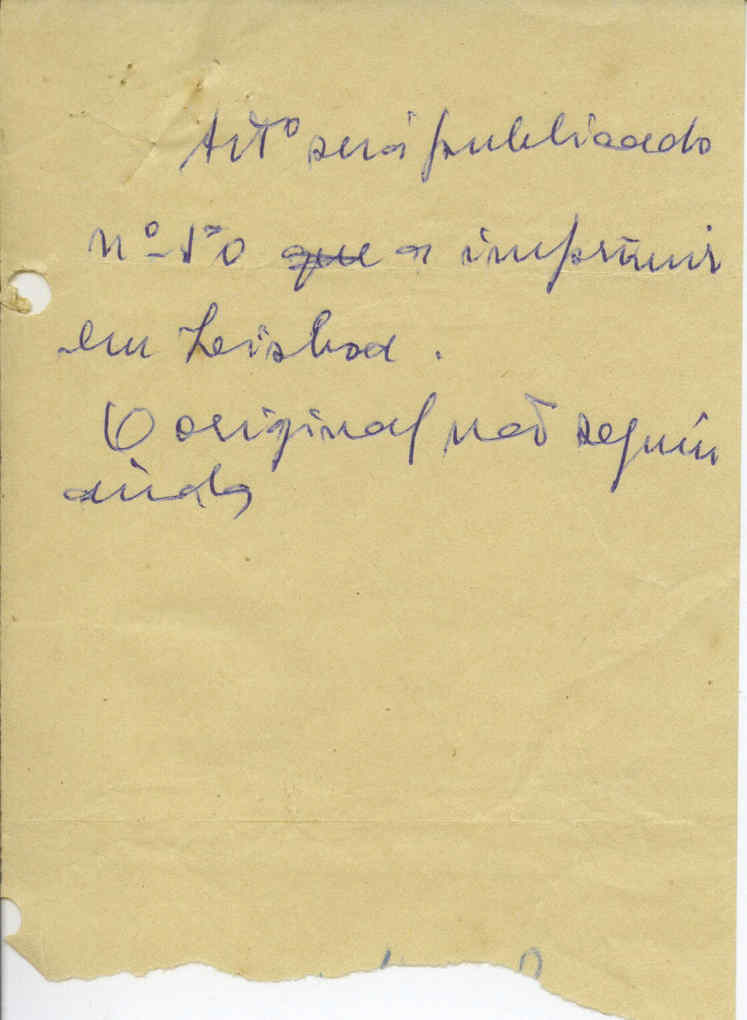 Artº será publicado
nº 10 ~~que~~ a imprimir
em Leisboa.
O original não seguiu
ainda